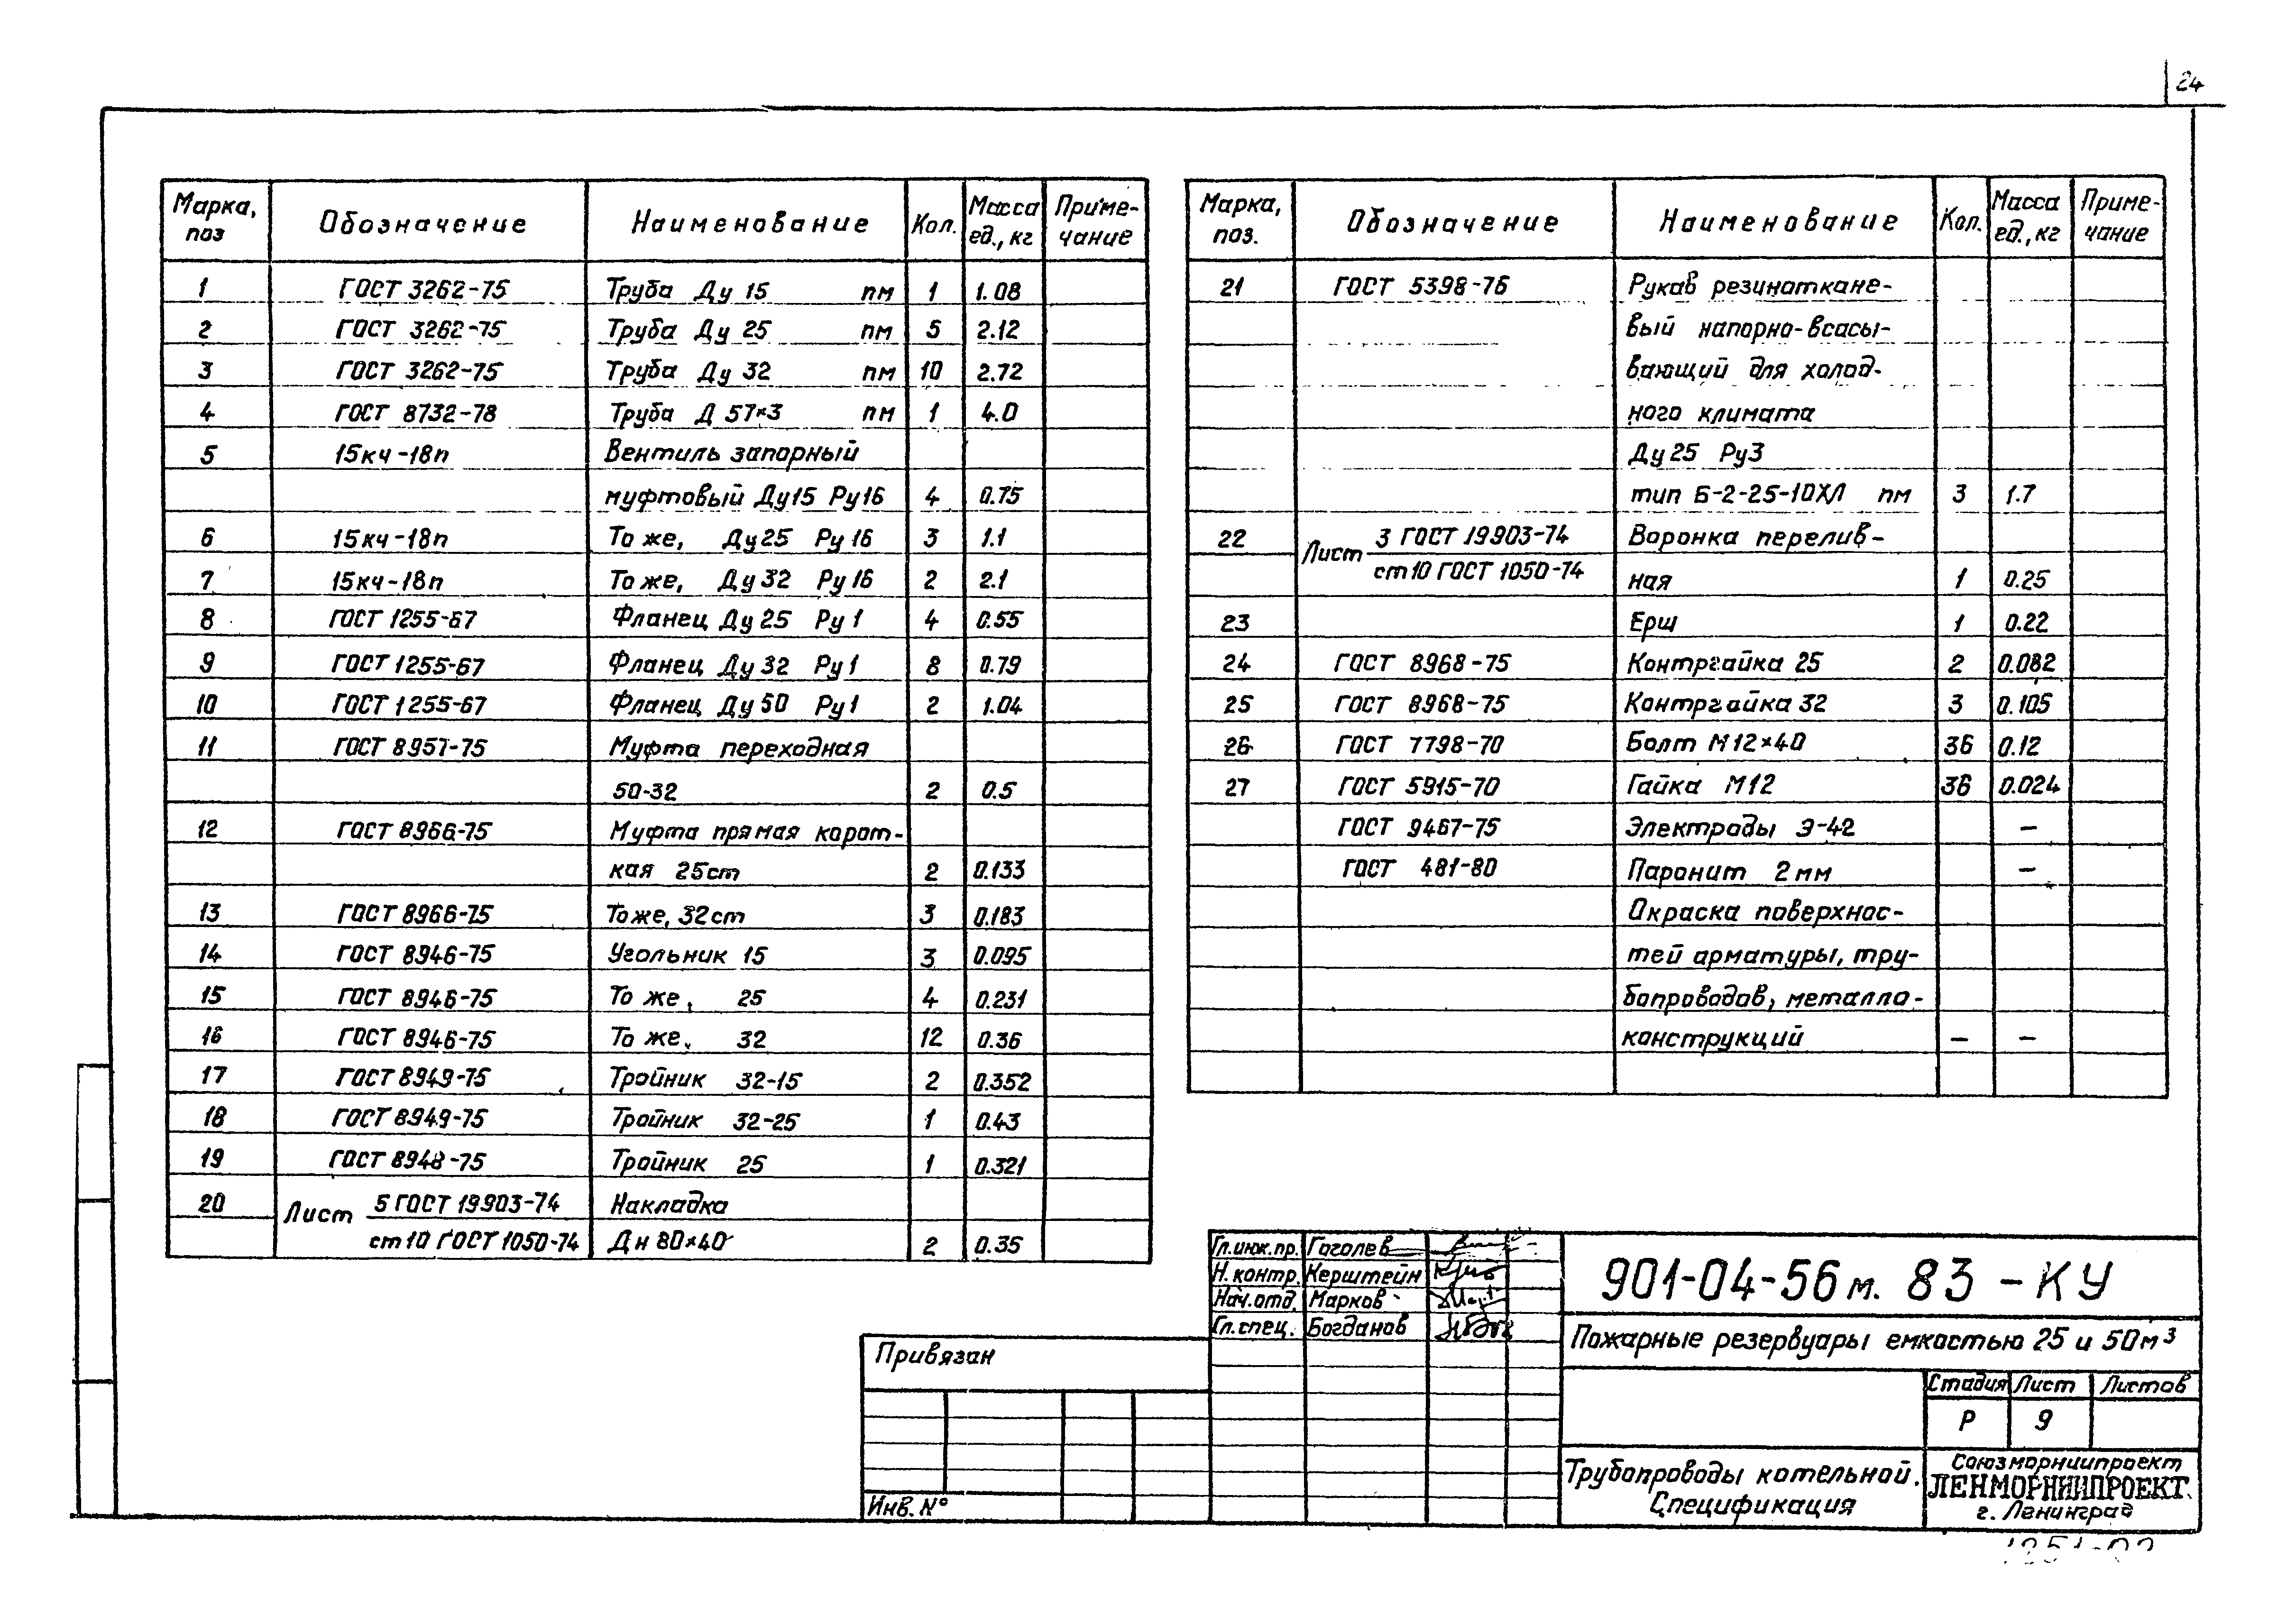 24
Марка, поз Обозначение Наименование Кол. Масса ед., кг Примечание
1 ГОСТ 3262-75 Труба Ду 15 пм 1 1.08
2 ГОСТ 3262-75 Труба Ду 25 пм 5 2.12
3 ГОСТ 3262-75 Труба Ду 32 пм 10 2.72
4 ГОСТ 8732-78 Труба Д 57×3 пм 1 4.0
5 15кч-18п Вентиль запорный
муфтовый Ду15 Ру16 4 0.75
6 15кч-18п То же, Ду25 Ру16 3 1.1
7 15кч-18п То же, Ду32 Ру16 2 2.1
8 ГОСТ 1255-67 Фланец Ду25 Ру1 4 0.55
9 ГОСТ 1255-67 Фланец Ду32 Ру1 8 0.79
10 ГОСТ 1255-67 Фланец Ду50 Ру1 2 1.04
11 ГОСТ 8957-75 Муфта переходная
50-32 2 0.5
12 ГОСТ 8966-75 Муфта прямая корот-
кая 25ст 2 0.133
13 ГОСТ 8966-75 То же, 32ст 3 0.183
14 ГОСТ 8946-75 Угольник 15 3 0.095
15 ГОСТ 8946-75 То же, 25 4 0.231
16 ГОСТ 8946-75 То же, 32 12 0.36
17 ГОСТ 8949-75 Тройник 32-15 2 0.352
18 ГОСТ 8949-75 Тройник 32-25 1 0.43
19 ГОСТ 8948-75 Тройник 25 1 0.321
20 Лист 5 ГОСТ 19903-74 Накладка
ст10 ГОСТ 1050-74 Дн 80×40 2 0.35
Марка, поз. Обозначение Наименование Кол. Масса ед., кг Примечание
21 ГОСТ 5398-76 Рукав резиноткане-
вый напорно-всасы-
вающий для холод-
ного климата
Ду25 Ру3
тип Б-2-25-10ХЛ пм 3 1.7
22 Лист 3 ГОСТ 19903-74 Воронка перелив-
ст10 ГОСТ 1050-74 ная 1 0.25
23 Ерш 1 0.22
24 ГОСТ 8968-75 Контргайка 25 2 0.082
25 ГОСТ 8968-75 Контргайка 32 3 0.105
26 ГОСТ 7798-70 Болт М12×40 36 0.12
27 ГОСТ 5915-70 Гайка М12 36 0.024
ГОСТ 9467-75 Электроды Э-42 —
ГОСТ 481-80 Паронит 2мм —
Окраска поверхнос-
тей арматуры, тру-
бопроводов, металло-
конструкций — —
Гл.инж.пр. Гоголев
Н. контр. Керштейн
Нач.отд. Марков
Гл.спец. Богданов
901-04-56м. 83 - КУ
Пожарные резервуары емкостью 25 и 50м³
Привязан
Инв. №
Стадия Лист Листов
Р 9
Трубопроводы котельной.
Спецификация
Союзморниипроект
ЛЕНМОРНИИПРОЕКТ
г. Ленинград